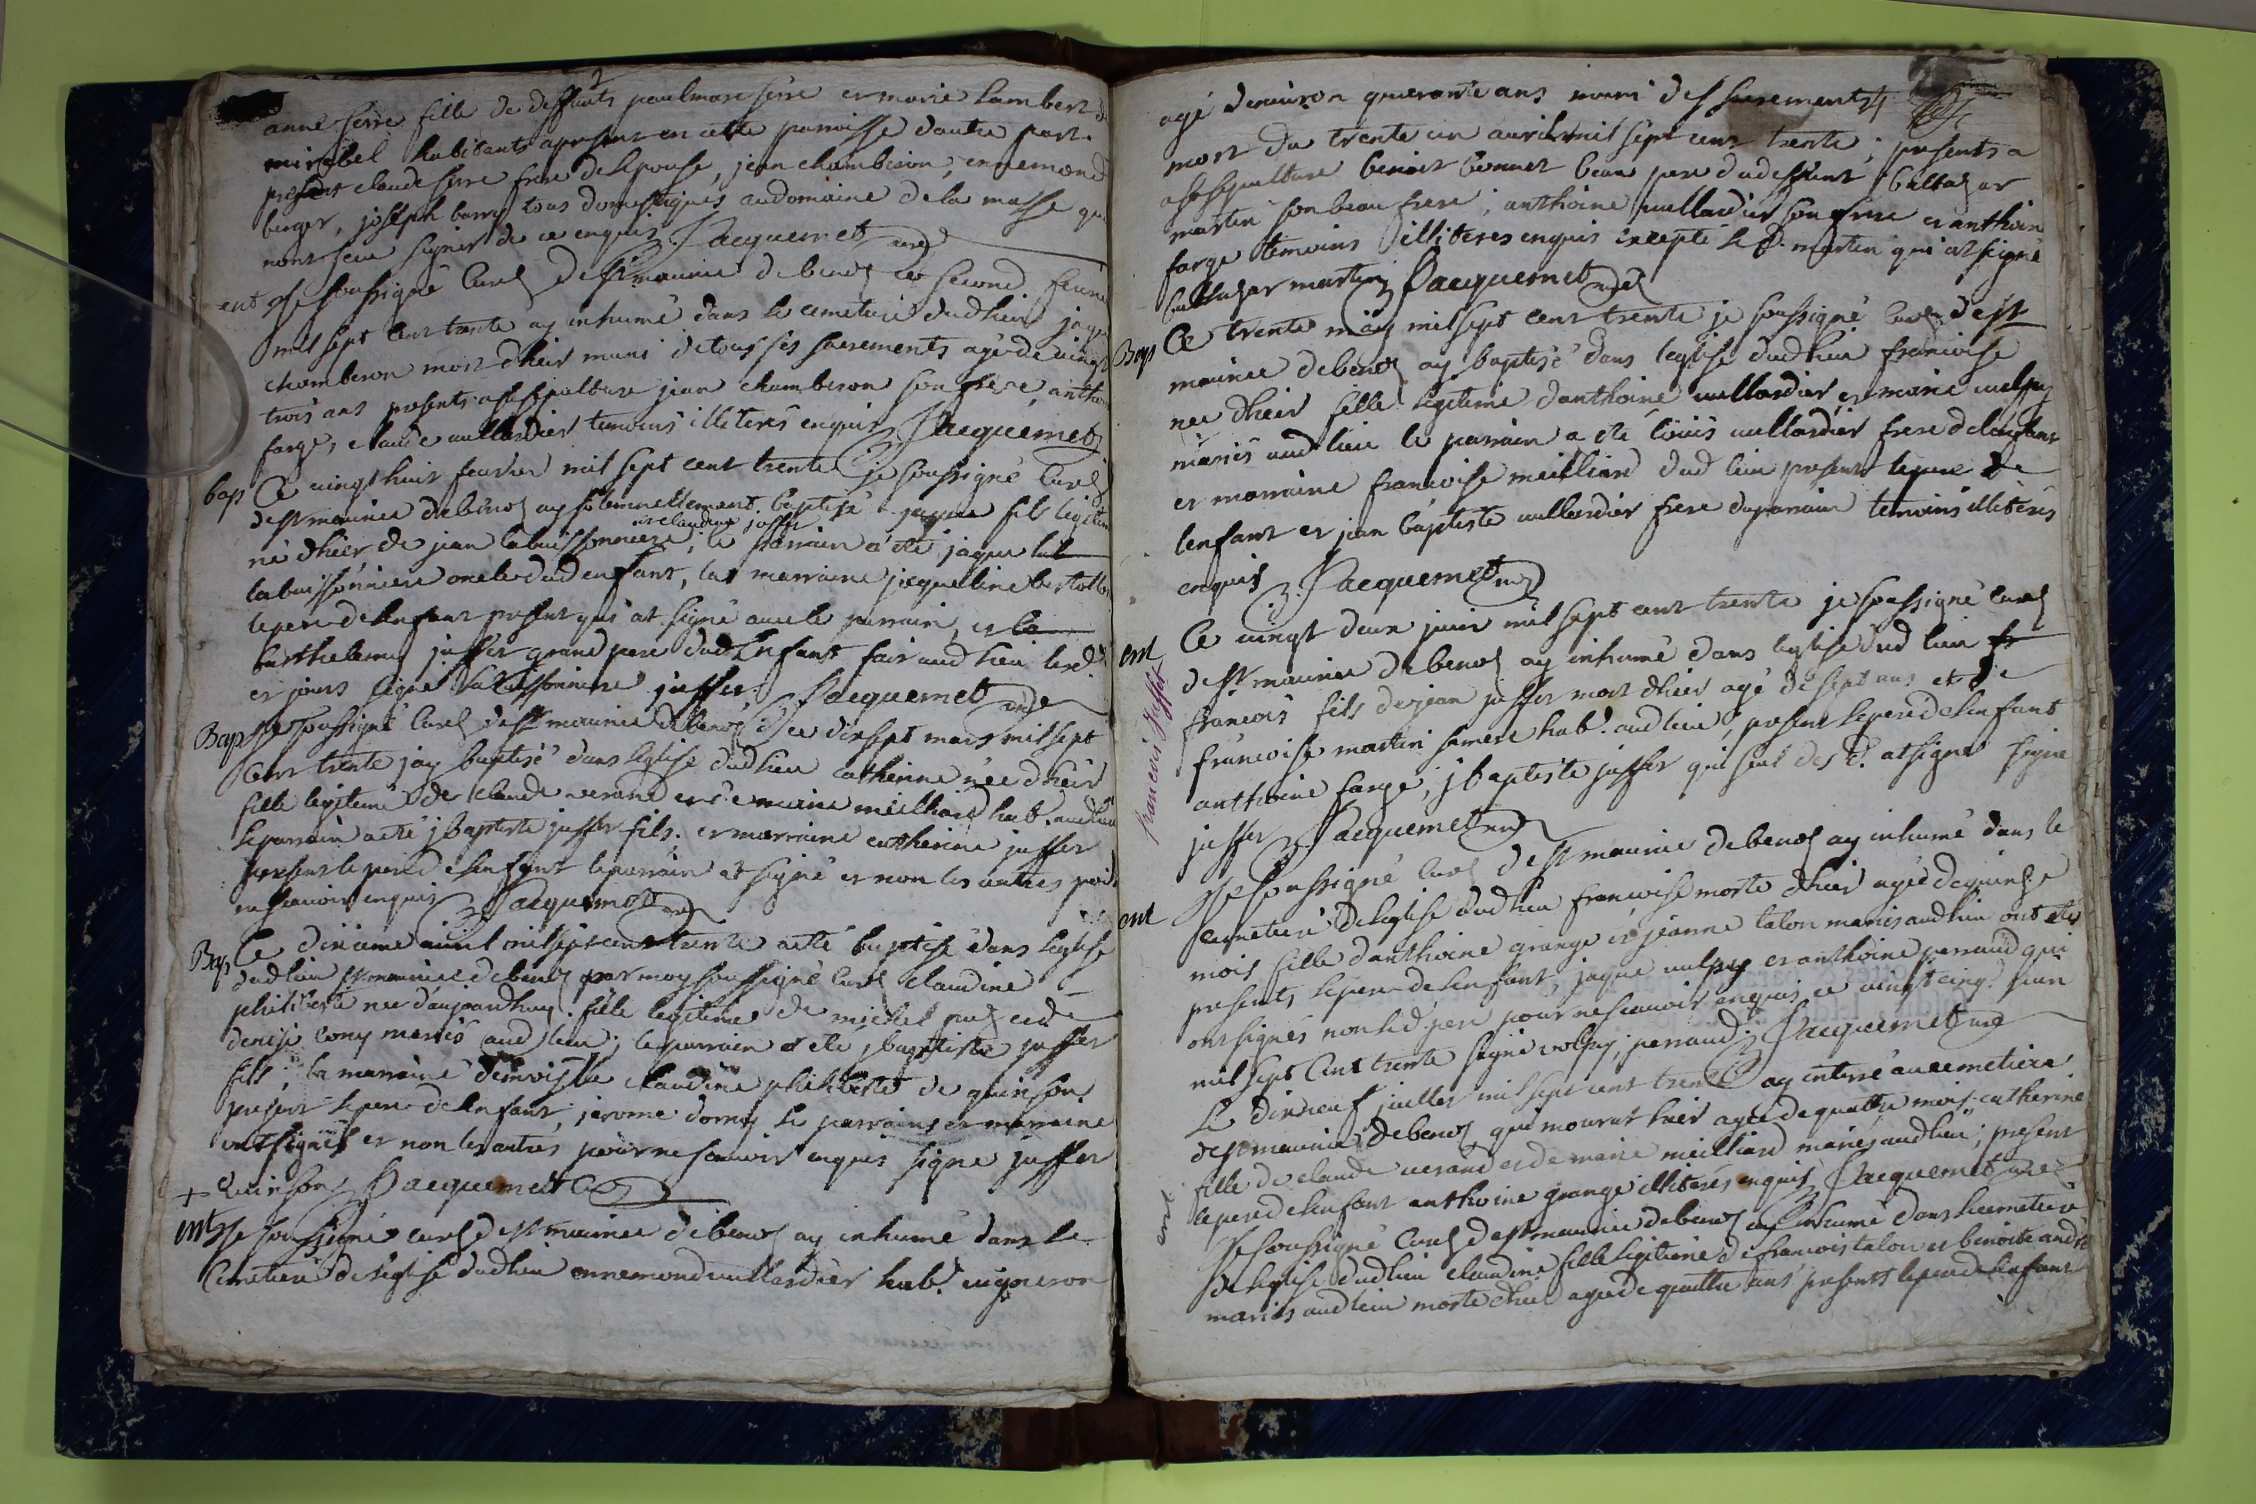 anne serre fille de deffunts paul marc serre et marie Lambert de
mirebel habitants apresent en cette parroisse d'autre part.
presents claude serre frere de lepouse, jean chamberon, ennemond
berger, joseph barry tous domestiques au domaine de la masse qui
nont sceu signer de ce enquis Jacquemet curé
ent Je soussigné Curé de St maurice de beinoz ce second feuvrier
mil sept cent trente ay inhumé dans le cemetiere dudlieu jaque
chamberon mort d'hier muni de tous ses sacrements agé de vingt
trois ans presents a sa sepulture jean chamberon son frere, anthoine
farge, claude vullardier temoins illiterés enquis Jacquemet
bap Ce vingt huit feuvrier mil sept cent trente je soussigné Curé
de St maurice de beinoz ay solemnellement baptisé jaque fils legitime
et claudine juffet
né d'hier de jean labuissonniere; le parrain a été jaque
labuissonniere oncle dud enfant, la marraine jacqueline
le pere de lenfant present qui at signé avec le parrain, et
barthelemy juffet grand pere dud Enfant fait aud lieu les d.
et jours signé labuissonniere juffet Jacquemet curé
Bap Je soussigné Curé de St maurice de beinoz ce dixsept mars mil sept
Cent trente jay baptisé dans leglise dudlieu catherine née d'hier
fille legitime de claude verand et de marie meilliard hab. aud lieu
le parrain a été jbaptiste juffet fils; et marraine catherine juffet
present le pere de lenfant le parrain at signé et non les autres pour
ne scavoir enquis Jacquemet curé
Bap Ce dixieme avril mil sept cent trente a été baptisé dans leglise
dud lieu St maurice de beinoz par moy soussigné curé claudine
philiberte née d'aujourdhuy fille legitime de michel et de
denise cony mariés aud lieu; le parrain a été jbaptiste juffet
fils; la marraine demoiselle claudine philiberte de quinson
present le pere de lenfant, jerome dorny le parrain et marraine
ont signés et non les autres pour ne scavoir enquis signé juffet
+ quinson Jacquemet curé
ent Je soussigné curé de St maurice de beinoz ay inhumé dans le
Cemetiere de leglise dudlieu ennemond vullardier hab. vigneron
agé denviron quarante ans muni des sacrements
mort du trente un avril mil sept cent trente; presents a
sa sepulture benoit bonnet beau pere dudeffunt, baltazar
martin son beau frere, anthoine vullardier son frere et anthoine
farge temoins illiteres enquis excepté le d. martin qui at signé
baltazar martin Jacquemet curé
Bap Ce trente may mil sept cent trente je soussigné Curé de St
maurice de beinoz ay baptisé dans leglise dudlieu francoise
née d'hier fille legitime d'anthoine vullardier et marie vulpy
mariés aud lieu le parrain a été louis vullardier frere de lenfant
et marraine francoise meilliard dud lieu present le pere de
lenfant et jean baptiste vullardier frere du parrain temoins illiterés
enquis Jacquemet curé
ent Ce vingt deux juin mil sept cent trente je soussigné Curé
de St maurice de beinoz ay inhumé dans leglise dud lieu
francois fils de jean juffet mort d'hier agé de sept ans et de
francoise martin sa mere hab. aud lieu, present le pere de lenfant
anthoine farge, jbaptiste juffet qui seul des d. at signer signé
juffet Jacquemet curé
francois Juffet
ent Je soussigné Curé de St maurice de beinoz ay inhumé dans le
cemetiere de leglise dudlieu francoise morte d'hier agée de quinze
mois fille d'anthoine grange et jeanne talon mariés aud lieu ont été
presents le pere de lenfant, jaque vulpy et anthoine perraud qui
ont signés non led. pere pour ne scavoir enquis ce vingt cinq juin
mil sept Cent trente signé volpy, perraud; Jacquemet curé
Le dixneuf juillet mil sept cent trente ay enterré au cemetiere
de St maurice de beinoz qui mourut hier agée de quattre mois catherine
fille de claude verand et de marie meilliard mariés aud lieu; present
le pere de lenfant anthoine grange illiterés enquis Jacquemet curé
ent Je soussigné Curé de St maurice de beinoz ay inhumé dans le cemetiere
de leglise dudlieu claudine fille legitime de francois talon et benoite andré
mariés aud lieu morte d'hier agée de quattre ans presents le pere de lenfant